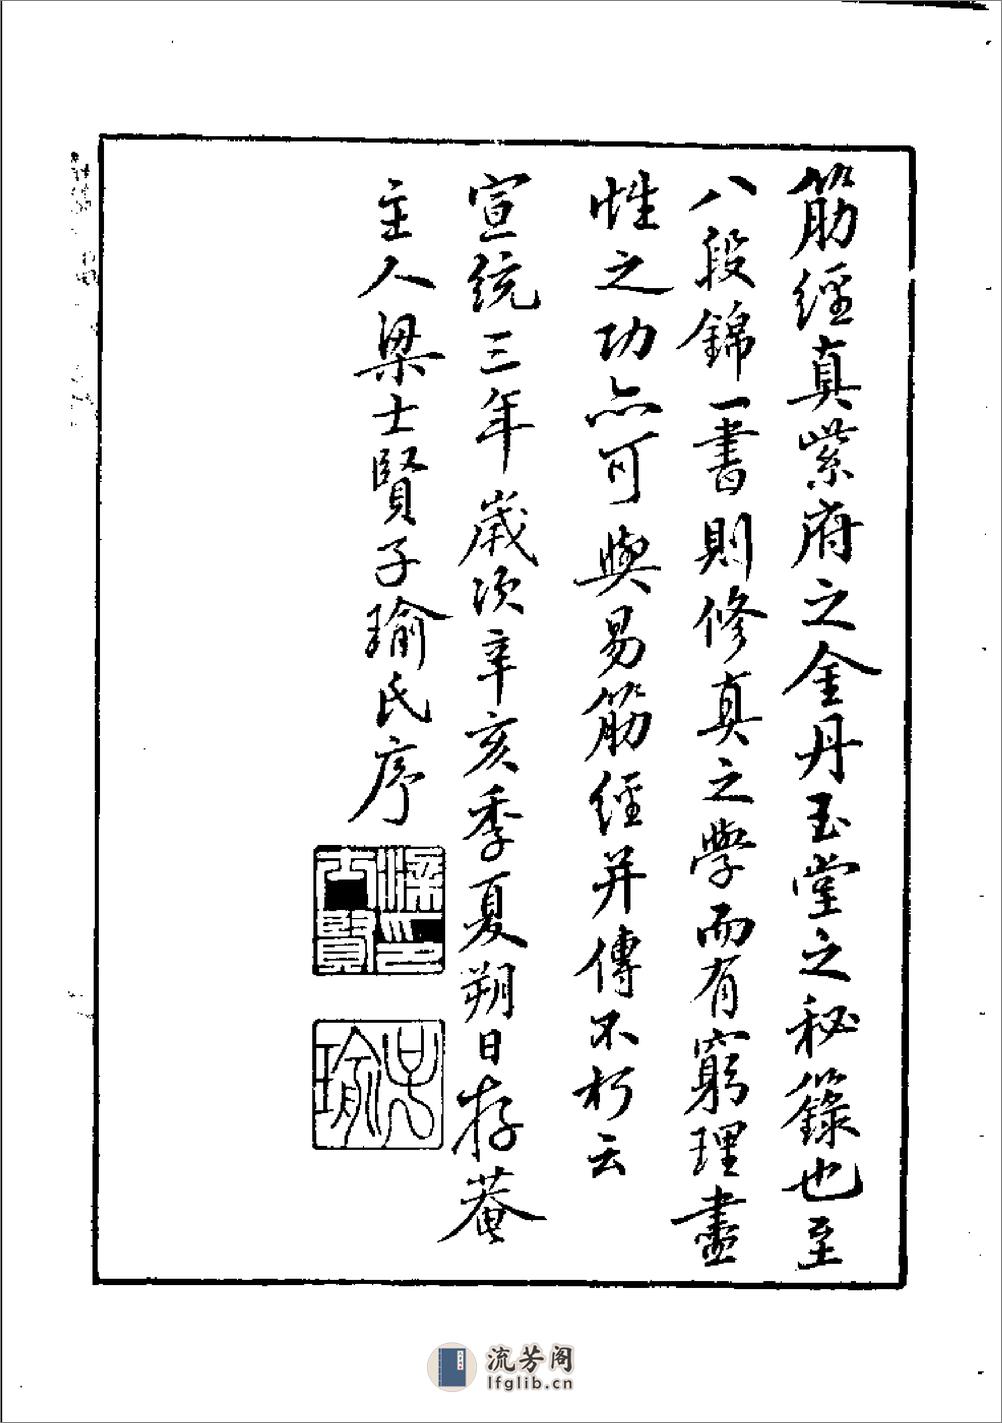 筋經真紫府之金丹玉堂之秘籙也至
八段錦一書則修真之學而有窮理盡
性之功亦可與易筋經并傳不朽云
宣統三年歲次辛亥季夏朔日存菴
主人梁士賢子瑜氏序
梁士賢印
子瑜
流芳阁
lfglib.cn